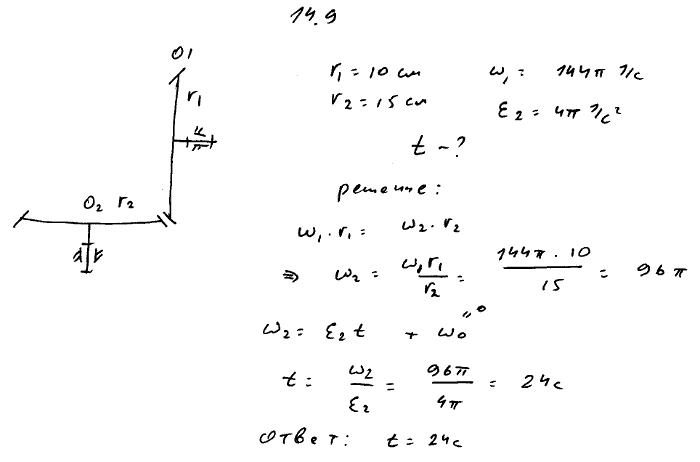 14.9
O1
r₁
O₂ r₂
r₁ = 10 см ω₁ = 144π 1/с
r₂ = 15 см ε₂ = 4π 1/с²
t - ?
решение:
ω₁ · r₁ = ω₂ · r₂
=> ω₂ = ω₁r₁/r₂ = 144π · 10/15 = 96π
ω₂ = ε₂t + ω₀ " 0
t = ω₂/ε₂ = 96π/4π = 24с
ответ: t = 24с